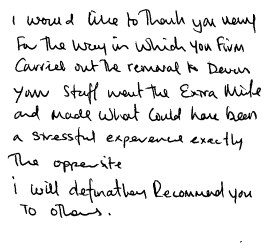 I would like to thank you very
for the way in which you Firm
Carried out the removal to Devon
your Staff went the Extra Mile
and made what could have been
a stressful experence exactly
The opposite
i will definathey Recommend you
To others.